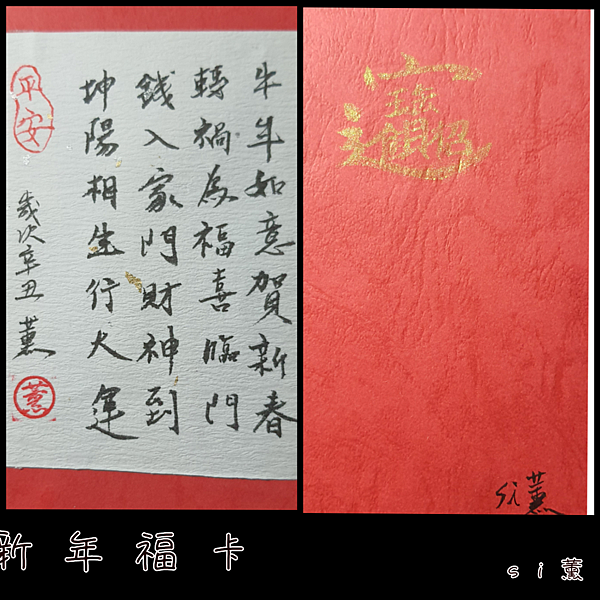 牛年如意賀新春
轉禍為福喜臨門
錢入家門財神到
坤陽相生行大運
歲次辛丑 薰
平安
薰
招財進寶
si薰
新年福卡
si薰